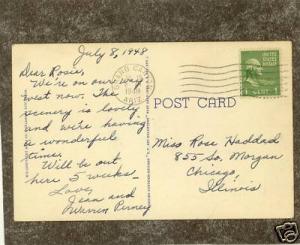 July 8, 1948
Dear Rosie,
We're on our way
west now. The
scenery is lovely
and we're having
a wonderful
time.
Will be out
here 5 weeks.
Love,
Jean and
Warren
GRAND CANYON
ARIZ.
1948
UNITED STATES
1 CENT 1
POST CARD
Miss Rose Haddad
855 So. Morgan
Chicago,
Illinois